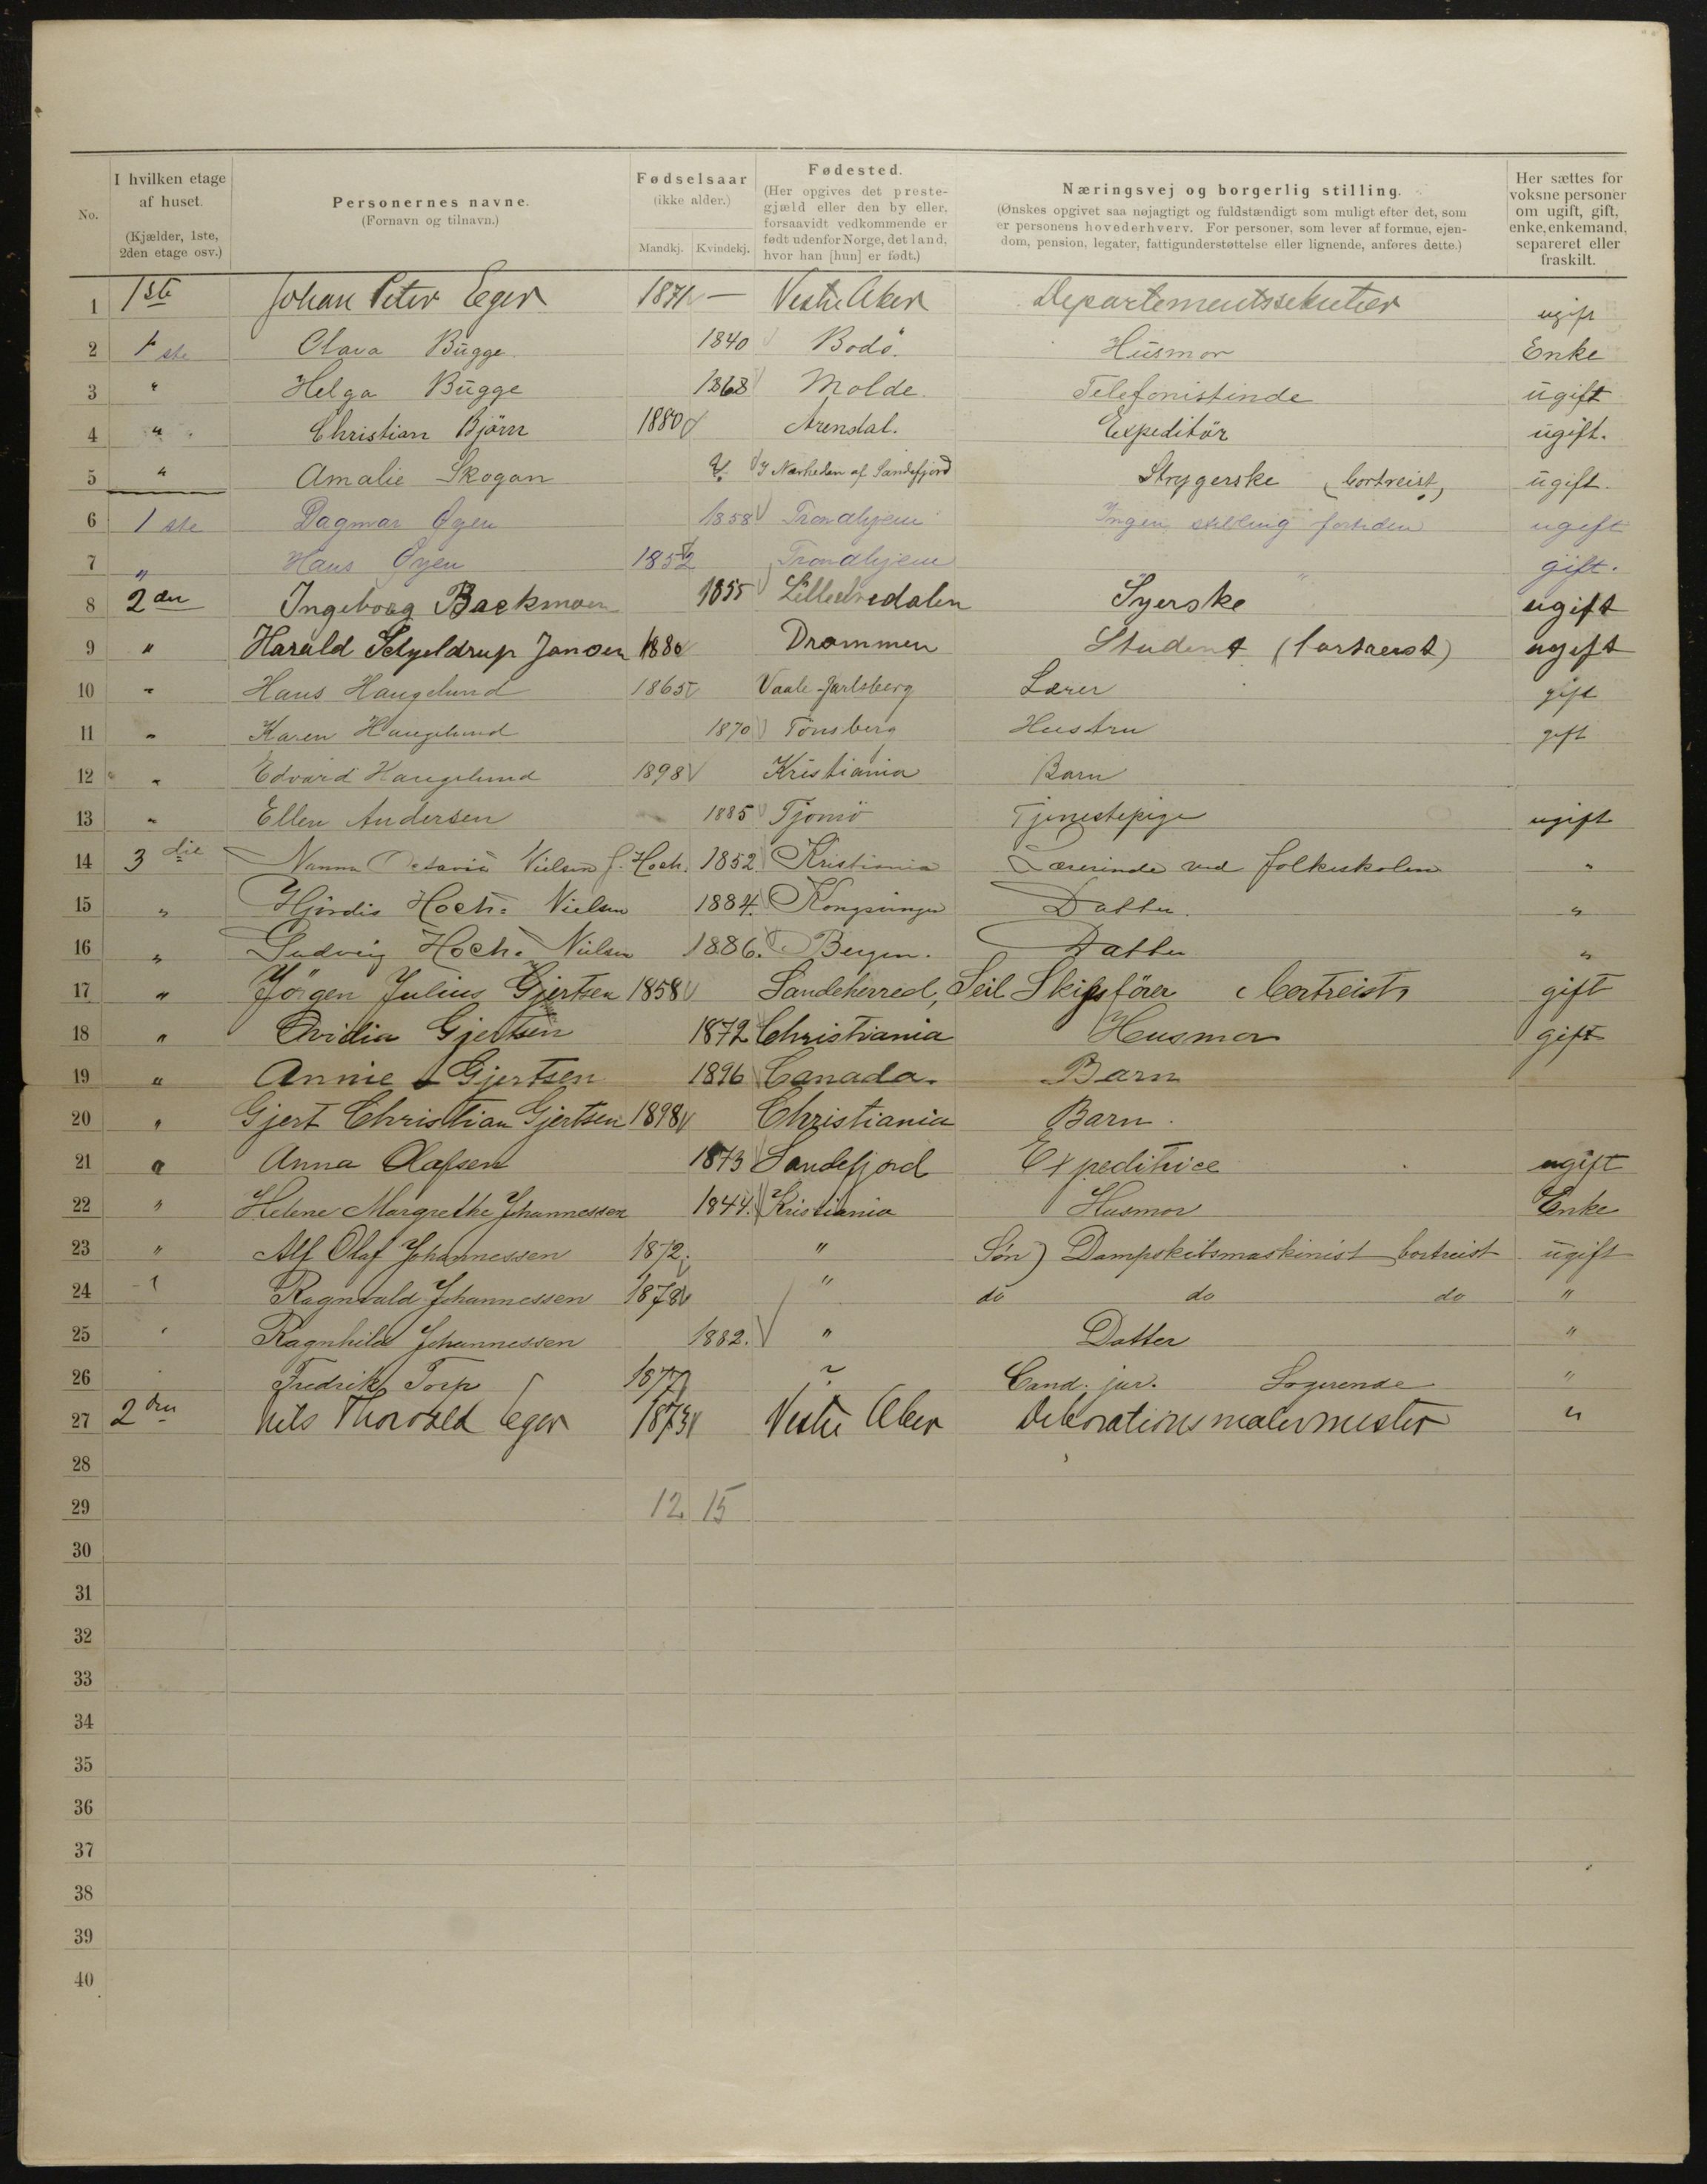 No.
I hvilken etage af huset. (Kjælder, 1ste, 2den etage osv.)
Personernes navne. (Fornavn og tilnavn.)
Fødselsaar (ikke alder.) Mandkj. Kvindekj.
Fødested. (Her opgives det prestegjæld eller den by eller, forsaavidt vedkommende er født udenfor Norge, det land, hvor han [hun] er født.)
Næringsvej og borgerlig stilling. (Ønskes opgivet saa nøjagtigt og fuldstændigt som muligt efter det, som er personens hovederhverv. For personer, som lever af formue, ejendom, pension, legater, fattigunderstøttelse eller lignende, anføres dette.)
Her sættes for voksne personer om ugift, gift, enke, enkemand, separeret eller fraskilt.
1 1ste Johan Peter Eger 1871 — Vestre Aker Departementssekretær ugift
2 1ste Olava Bugge 1840 Bodö. Husmor Enke
3 " Helga Bugge 1868 Molde. Telefonistinde ugift
4 " Christian Björn 1880 Arendal. Expeditör ugift.
5 " Amalie Skogan ?. I Nærheden af Sandefjord Strygerske (bortreist) ugift.
6 1ste Dagmar Øyen 1858 Trondhjem Ingen stilling fortiden ugift
7 " Hans Øyen 1852 Trondhjem " gift.
8 2den Ingeborg Backmoen 1855 Syerske ugift
9 " Harald Schjeldrup Jansen 1880 Drammen Student (bortreist) ugift
10 " Hans Haugelund 1865 Vaale Jarlsberg Lærer gift
11 " Karen Haugelund 1870 Tönsberg Hustru gift
12 " Edvard Haugelund 1898 Kristiania Barn
13 " Ellen Andersen 1885 Tjömö Tjenestepige ugift
14 3die Nanna Octavia Nielsen f. Hoch. 1852 Kristiania Lærerinde ved folkeskolen "
15 " Hjördis Hoch= Nielsen 1884. Kongsvinger Datter. "
16 " Ludvig Hoch= Nielsen 1886. Bergen. Datter "
17 " Jörgen Julius Gjertsen 1858 Sandeherred, Seil Skipsförer (bortreist) gift
18 " Ovidia Gjertsen 1872 Christiania Husmor gift
19 " Annie Gjertsen 1896 Canada. Barn
20 " Gjert Christian Gjertsen 1898 Christiania Barn.
21 " Anna Olafsen 1873 Sandefjord Expeditrice ugift
22 " Helene Margrethe Johannessen 1844. Kristiania Husmor Enke
23 " Alf Olaf Johannessen 1872. " Sön) Dampskibsmaskinist bortreist ugift
24 " Ragnvald Johannessen 1878 " do do do "
25 " Ragnhild Johannessen 1882. " Datter "
26 Fredrik Torp 187 ? Cand. jur. Logerende "
27 2den Nils Thorvald Eger 1873 Vestre Aker Dekorationsmalermester "
28
29 12 15
30
31
32
33
34
35
36
37
38
39
40